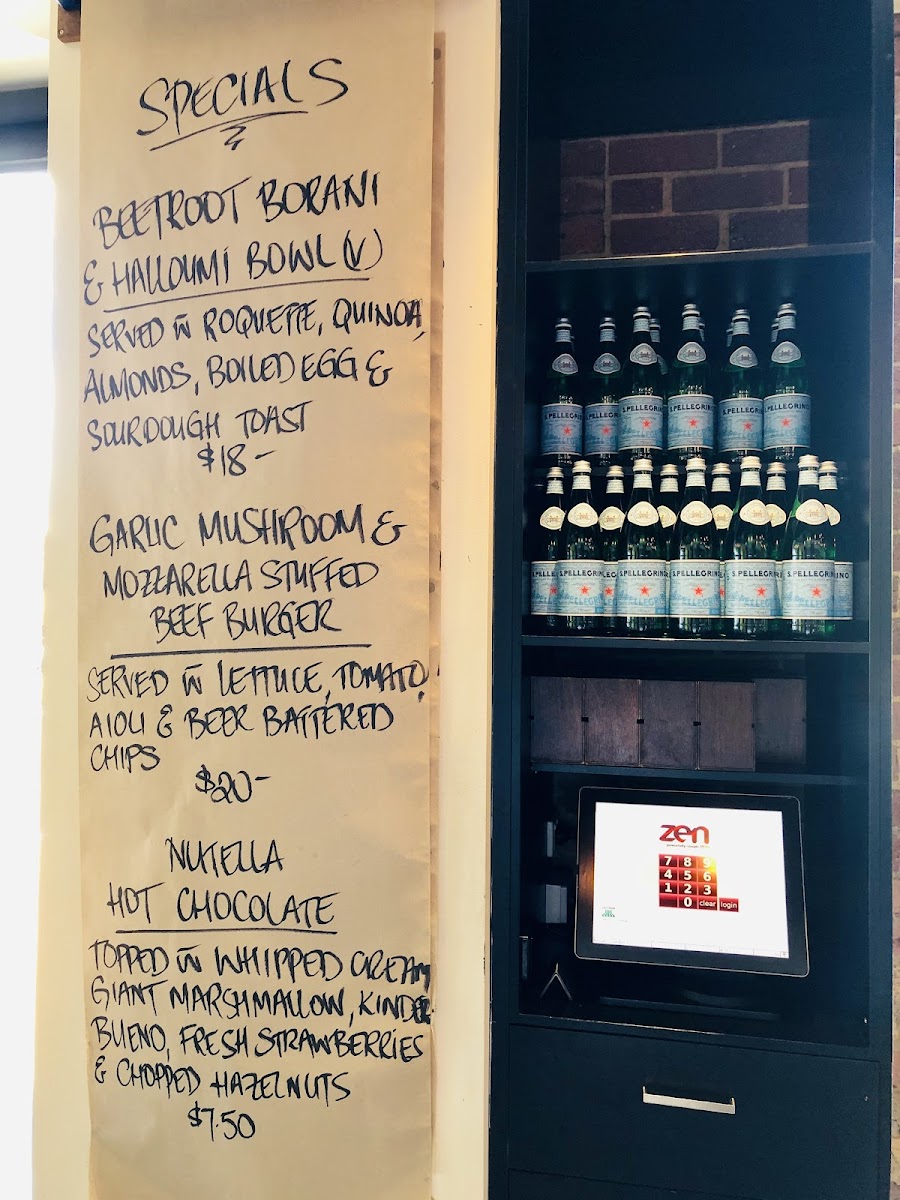 SPECIALS
BEETROOT BORANI
& HALLOUMI BOWL (V)
SERVED W ROQUETTE, QUINOA,
ALMONDS, BOILED EGG &
SOURDOUGH TOAST
$18-
GARLIC MUSHROOM &
MOZZARELLA STUFFED
BEEF BURGER
SERVED W LETTUCE, TOMATO,
AIOLI & BEER BATTERED
CHIPS
$20-
NUTELLA
HOT CHOCOLATE
TOPPED W WHIPPED CREAM
GIANT MARSHMALLOW, KINDER
BUENO, FRESH STRAWBERRIES
& CHOPPED HAZELNUTS
$7.50
S.PELLEGRINO
S.PELLEGRINO
S.PELLEGRINO
S.PELLEGRINO
S.PELLEGRINO
S.PELLEGRINO
S.PELLEGRINO
S.PELLEGRINO
zen
7 8 9
4 5 6
1 2 3
0 clear login